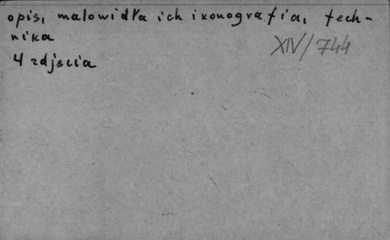 opis, malowidła ich ikonografia, tech-
nika
XIV/744
4 zdjęcia